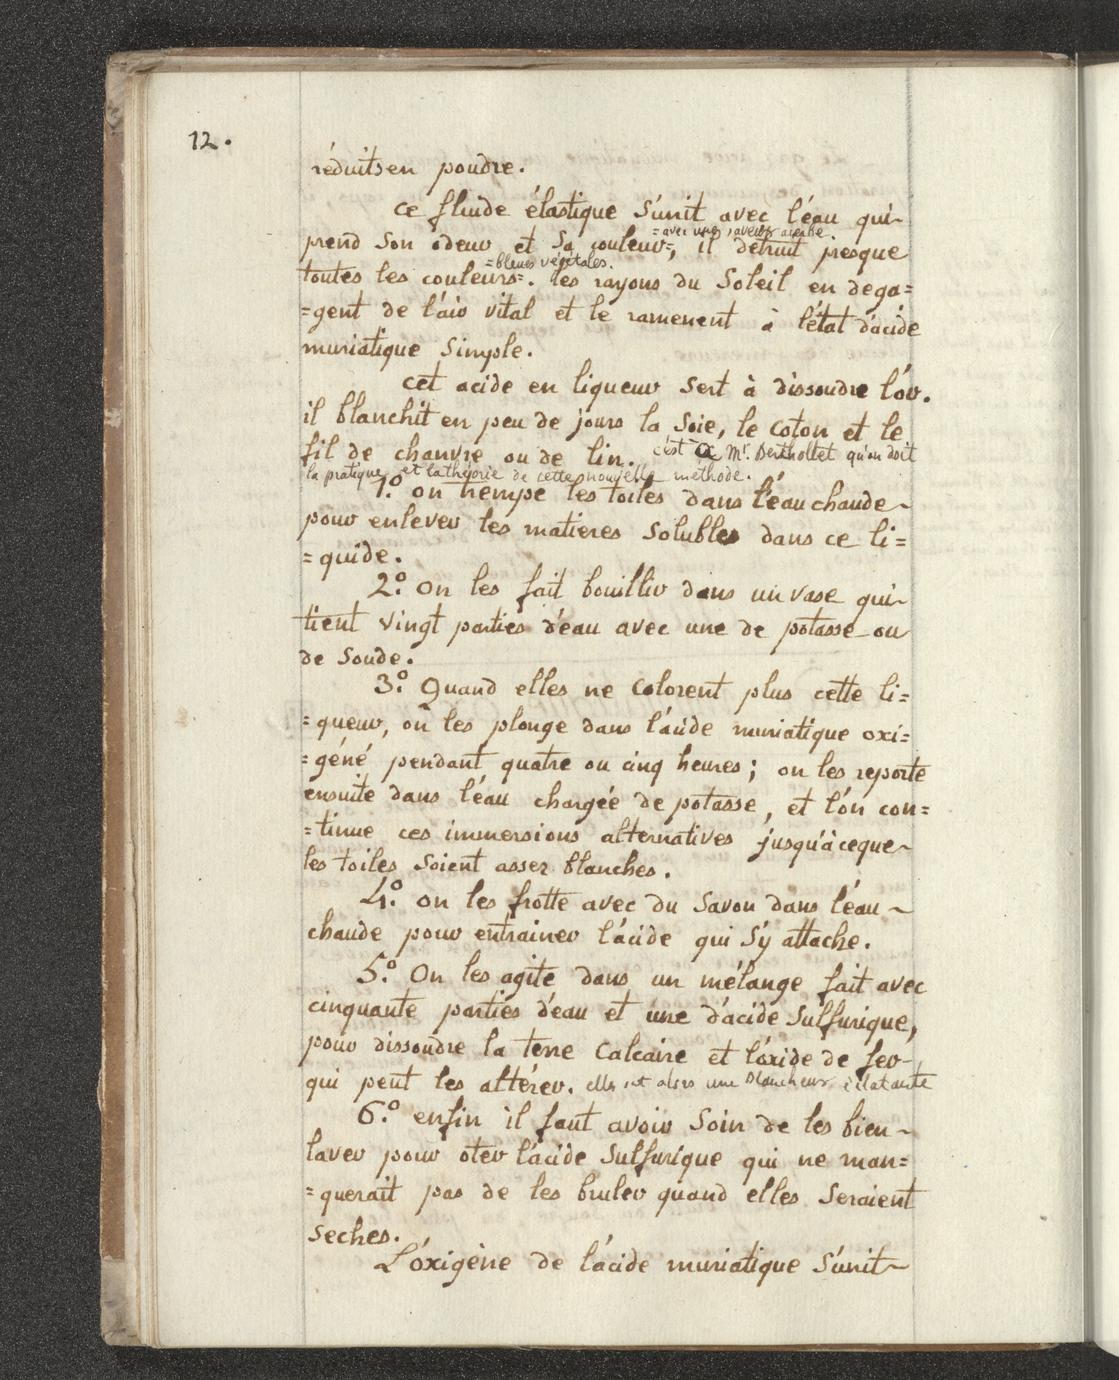 12.
réduits en poudre.
ce fluide élastique s'unit avec l'éau qui
= avec une saveur acerbe.
prend son odeur et sa couleur=, il détruit presque
= bleues végétales.
toutes les couleurs=. les rayons du Soleil en dega=
=gent de l'air vital et le ramenent à l'état d'acide
muriatique simple.
cet acide en liqueur sert à dissoudre l'or.
il blanchit en peu de jours la soie, le coton et le
fil de chanvre ou de lin. c'est à Mr. Berthollet qu'on doit
la pratique et la théorie de cette nouvelle méthode.
1.° on trempe les toiles dans l'éau chaude
pour enlever les matieres solubles dans ce li=
=quide.
2.° On les fait bouillir dans un vase qui
tient vingt parties d'éau avec une de potasse ou
de soude.
3.° Quand elles ne colorent plus cette li=
=queur, on les plonge dans l'acide muriatique oxi=
=géné pendant quatre ou cinq heures; on les reporte
ensuite dans l'éau chargée de potasse, et l'on con=
=tinue ces immersions alternatives jusqu'à ceque
les toiles soient assez blanches.
4.° on les frotte avec du savon dans l'éau
chaude pour entrainer l'acide qui s'y attache.
5.° On les agite dans un mélange fait avec
cinquante parties d'eau et une d'acide sulfurique,
pour dissoudre la terre calcaire et l'oxide de fer
qui peut les altérer. elles ont alors une blancheur éclatante
6.° enfin il faut avoir soin de les bien
laver pour oter l'acide sulfurique qui ne man=
=querait pas de les bruler quand elles seraient
seches.
L'óxigène de l'acide muriatique s'unit